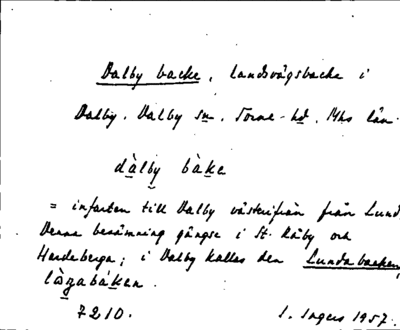 Dalby backe, landsvägsbacke i
Dalby. Dalby sn. Torna-hd. Mhs län.
dàlby bàke
= infarten till Dalby västerifrån från Lund.
Denna benämning gängse i St. Råby och
Hardeberga; i Dalby kallas den Lundabacken,
lànabàken.
7210. I. Ingers 1957.